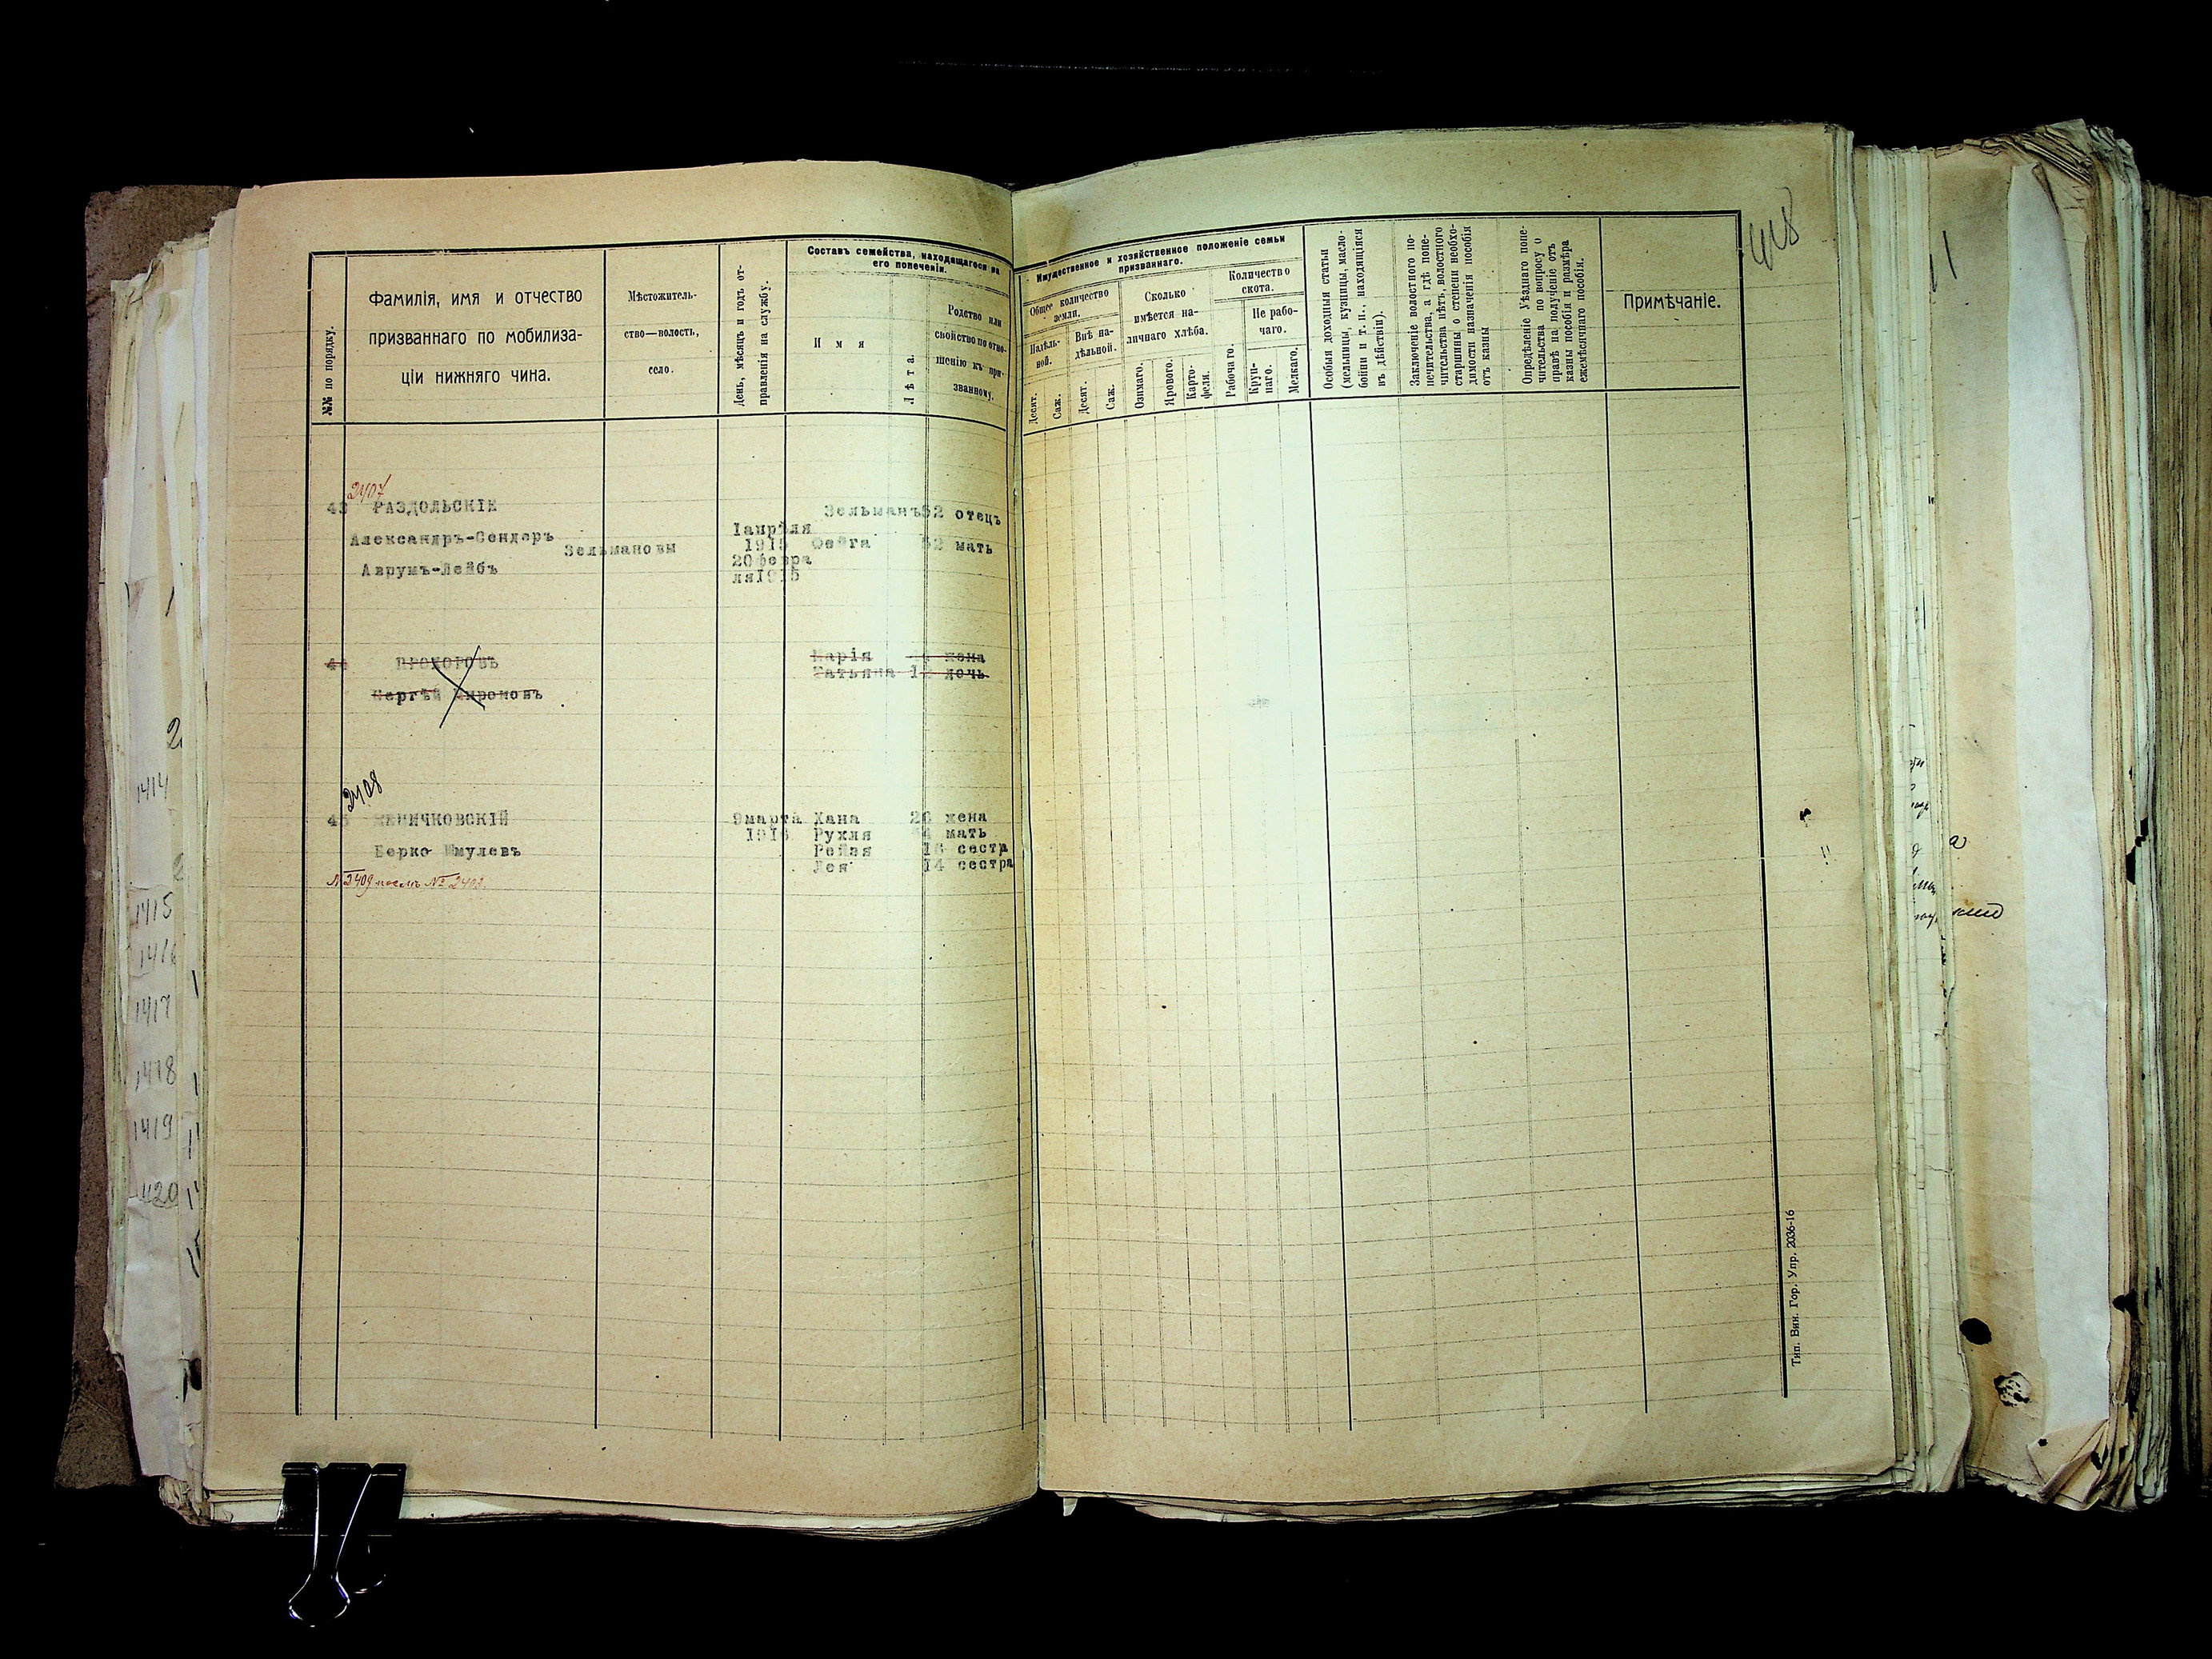 №№ по порядку.
Фамилія, имя и отчество
призваннаго по мобилиза-
ціи нижняго чина.
Мѣстожитель-
ство—волость,
село.
День, мѣсяцъ и годъ от-
правленія на службу.
Составъ семейства, находящагося на
его попеченіи.
И м я
Лѣта.
Родство или
свойство по отно-
шенію къ при-
званному.
2407
43 РАЗДОЛЬСКІЕ
Александръ-Сендеръ
Зельмановы
Аврумъ-Лейбъ
1апрѣля
1915
20февра
ля1915
Зельманъ 52 отецъ
Фейга 52 мать
44 ПРОХОРОВЪ
Сергѣй Мироновъ
Марія жена
Татьяна 12 дочь
2408
45 ЯНИЧКОВСКІЙ
Берко Шмулевъ
9марта
1916
Хана 26 жена
Рухля мать
Рейзя 16 сестра
Лея 14 сестра
№ 2409 послѣ № 2403.
Имущественное и хозяйственное положеніе семьи
призваннаго.
Общее количество
земли.
Надѣль-
ной.
Внѣ на-
дѣльной.
Десят.
Саж.
Десят.
Саж.
Сколько
имѣется на-
личнаго хлѣба.
Озимаго.
Ярового.
Карто-
феля.
Количество
скота.
Рабочаго.
Не рабо-
чаго.
Круп-
наго.
Мелкаго.
Особыя доходныя статьи
(мельницы, кузницы, масло-
бойни и т. п., находящіяся
въ дѣйствіи).
Заключеніе волостного по-
печительства, а гдѣ попе-
чительства нѣтъ, волостного
старшины о степени необхо-
димости назначенія пособія
отъ казны
Опредѣленіе Уѣзднаго попе-
чительства по вопросу о
правѣ на полученіе отъ
казны пособія и размѣра
ежемѣсячнаго пособія.
Примѣчаніе.
418
Тип. Вин. Гор. Упр. 2036-16
1414
1415
1416
1417
1418
1419
420